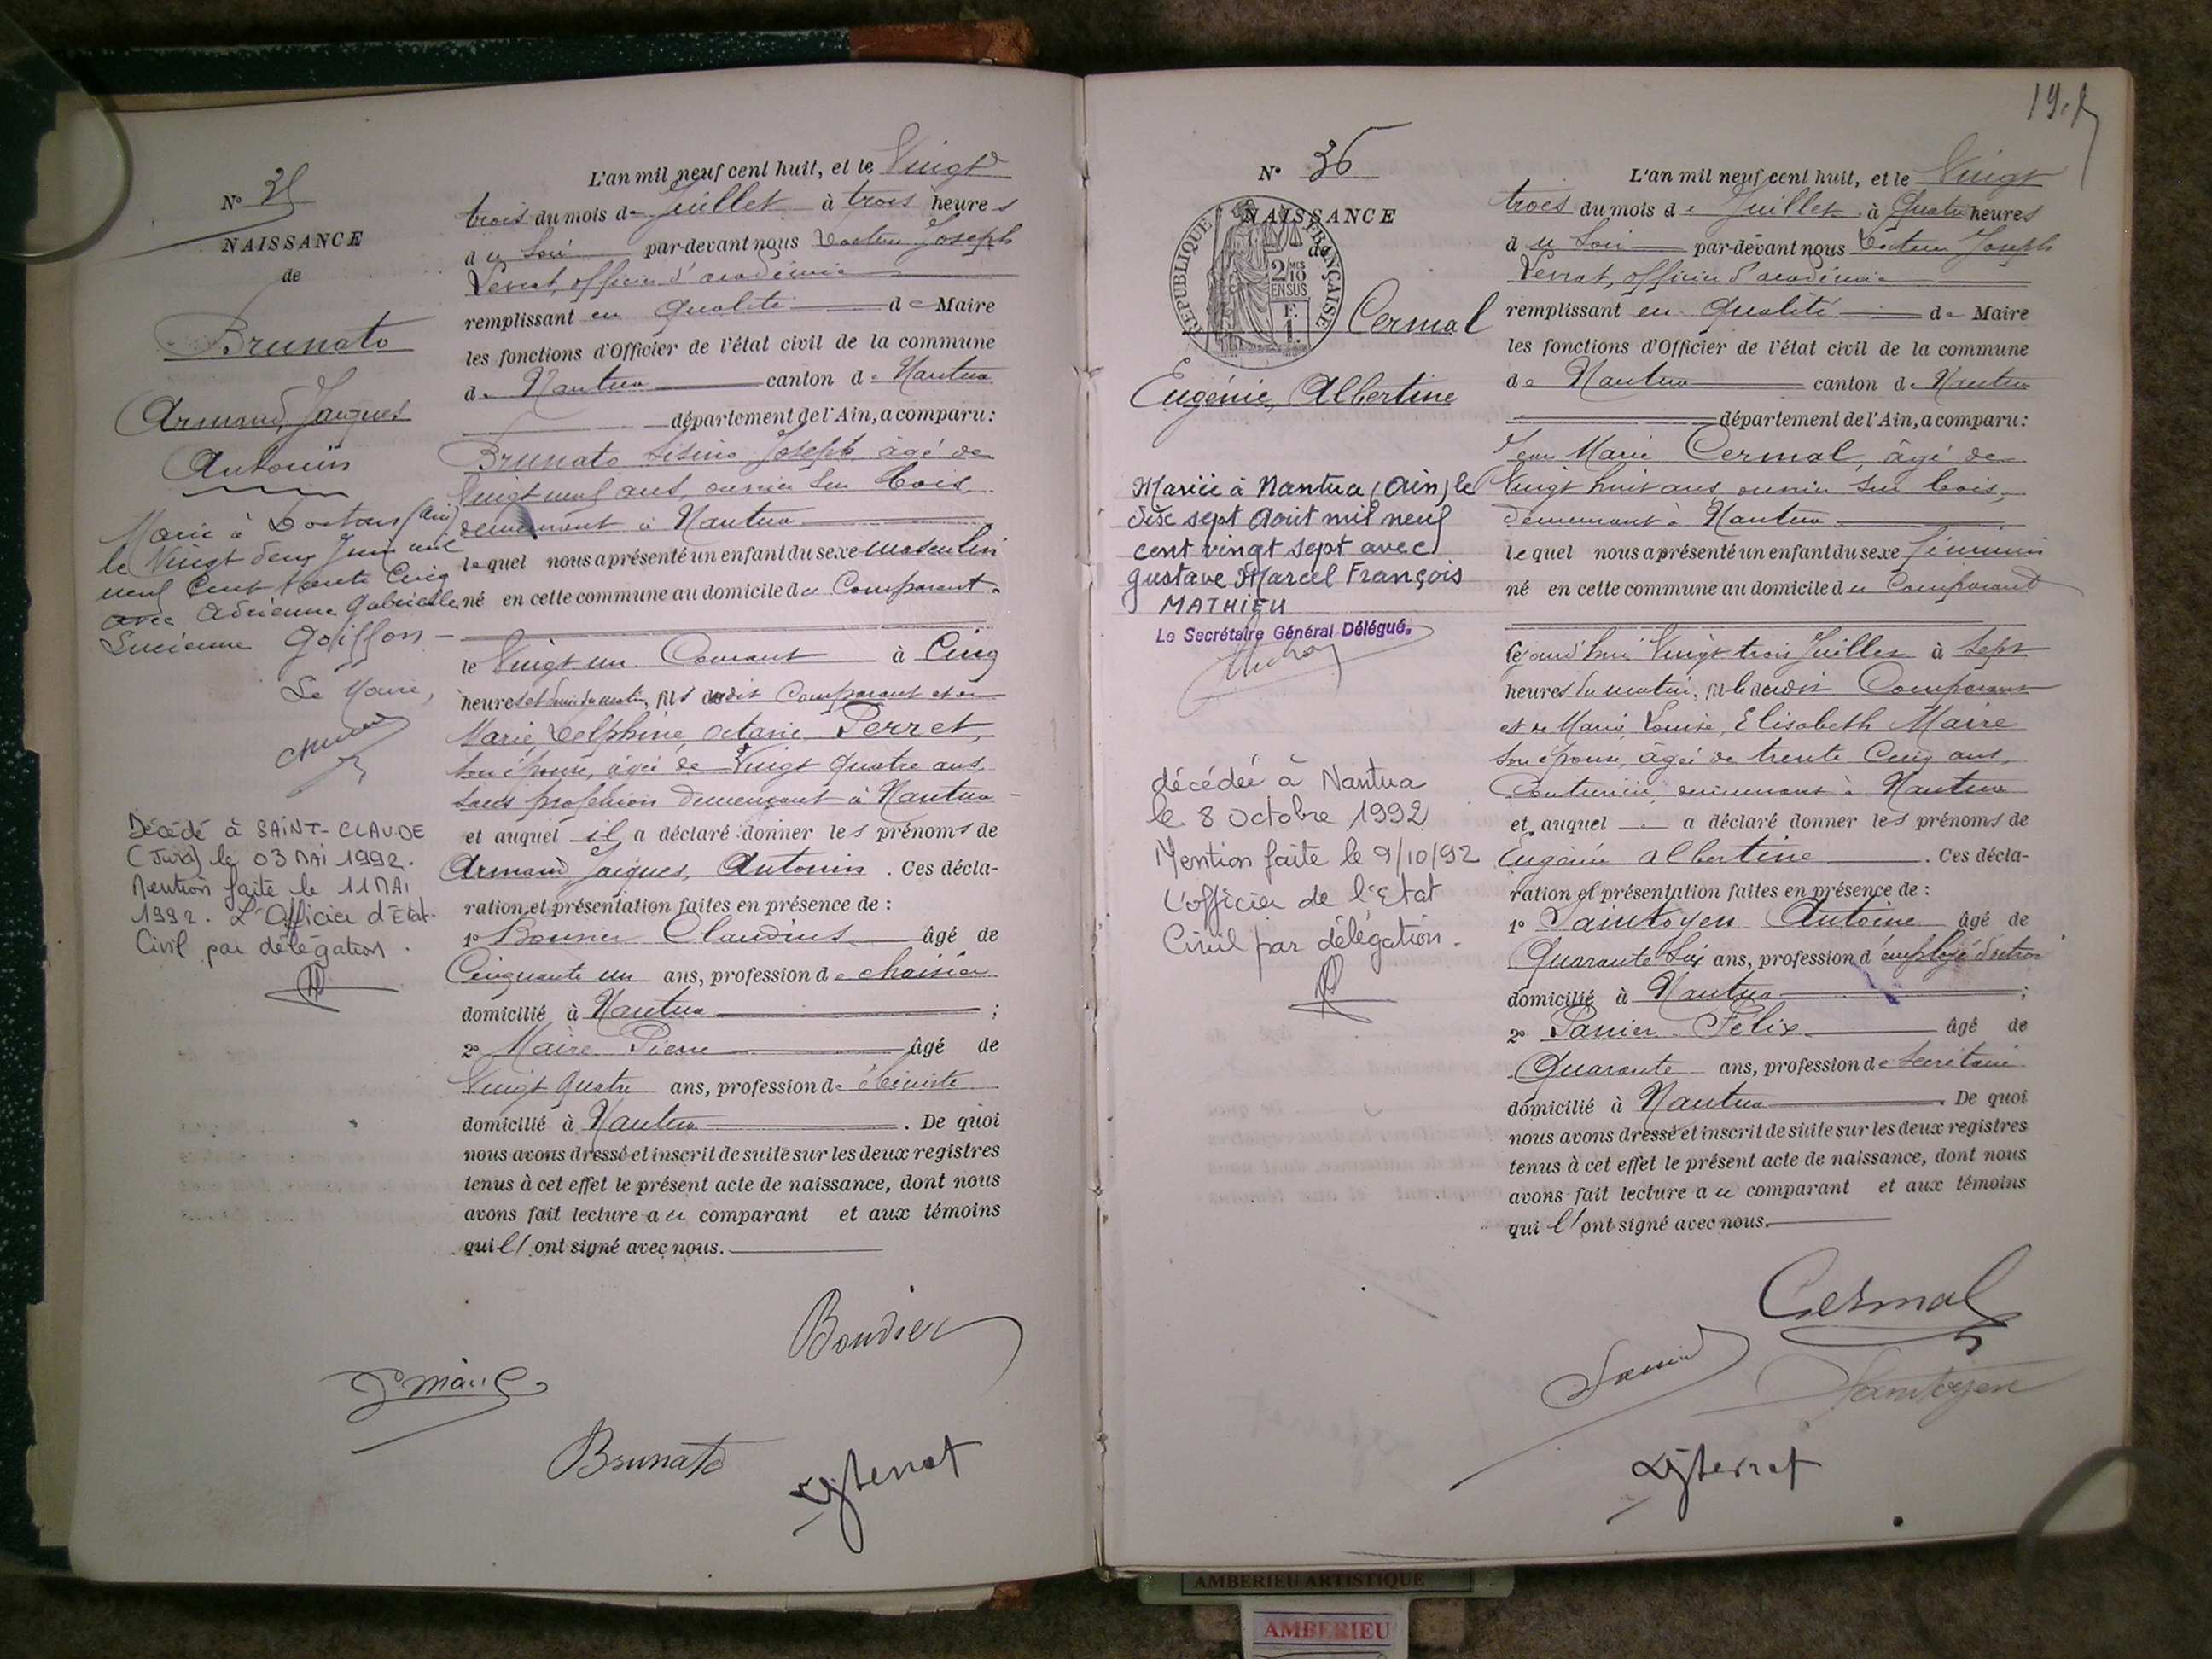 N° 35
NAISSANCE
de
Brunato
Armand, Jacques
Antonin
Marié à Dortan (Ain)
le Vingt deux Juin mil
neuf Cent trente Cinq
avec Adrienne Gabrielle
Lucienne Goiffon
Le Maire,
Décédé à SAINT-CLAUDE
(Jura) le 03 MAI 1992.
Mention faite le 11 MAI
1992. L'Officier d'Etat-
Civil par délégation.
L'an mil neuf cent huit, et le Vingt
trois du mois de Juillet à trois heures
du Soir par-devant nous Docteur Joseph
Levrat, officier d'académie
remplissant en qualité de Maire
les fonctions d'Officier de l'état civil de la commune
de Nantua canton de Nantua
département de l'Ain, a comparu :
Brunato Sisino Joseph, âgé de
Vingt neuf ans, ouvrier sur bois,
demeurant à Nantua
lequel nous a présenté un enfant du sexe masculin
né en cette commune au domicile du Comparant
le Vingt un Courant à Cinq
heures et demi du matin, fils dudit Comparant et de
Marie Delphine Octavie Perret,
son épouse, âgée de Vingt quatre ans,
sans profession demeurant à Nantua
et auquel il a déclaré donner les prénoms de
Armand Jacques, Antonin. Ces décla-
ration et présentation faites en présence de :
1° Claudius âgé de
Cinquante un ans, profession de chaisier
domicilié à Nantua ;
2° Maire Pierre âgé de
Vingt quatre ans, profession d'ébéniste
domicilié à Nantua. De quoi
nous avons dressé et inscrit de suite sur les deux registres
tenus à cet effet le présent acte de naissance, dont nous
avons fait lecture au comparant et aux témoins
qui l'ont signé avec nous.
Boudier
Brunato
19.
N° 36
NAISSANCE
de
RÉPUBLIQUE FRANÇAISE
2/10 MES
EN SUS
Cermal
Eugénie, Albertine
Mariée à Nantua (Ain) le
dix sept Août mil neuf
cent vingt sept avec
Gustave Marcel François
MATHIEU
Le Secrétaire Général Délégué.
décédée à Nantua
le 8 Octobre 1992
Mention faite le 9/10/92
L'officier de l'Etat
Civil par délégation.
L'an mil neuf cent huit, et le Vingt
trois du mois de Juillet à Quatre heures
du Soir par-devant nous Docteur Joseph
Levrat, officier d'académie
remplissant en qualité de Maire
les fonctions d'Officier de l'état civil de la commune
de Nantua canton de Nantua
département de l'Ain, a comparu :
Jean Marie Cermal, âgé de
Vingt huit ans, ouvrier sur bois,
demeurant à Nantua
lequel nous a présenté un enfant du sexe féminin
né en cette commune au domicile du Comparant
Cejourd'hui Vingt trois Juillet à Sept
heures du matin, fille dudit Comparant
et de Marie, Louise, Elisabeth Maire
son épouse, âgée de trente Cinq ans,
Couturière, demeurant à Nantua
et auquel a déclaré donner les prénoms de
Eugénie Albertine. Ces décla-
ration et présentation faites en présence de :
1° Saintoyen Antoine âgé de
Quarante Six ans, profession d'employé d'octroi
domicilié à Nantua ;
2° Panier Félix âgé de
Quarante ans, profession de Secrétaire
domicilié à Nantua. De quoi
nous avons dressé et inscrit de suite sur les deux registres
tenus à cet effet le présent acte de naissance, dont nous
avons fait lecture au comparant et aux témoins
qui l'ont signé avec nous.
Cermal
Saintoyen
AMBERIEU ARTISTIQUE
AMBERIEU